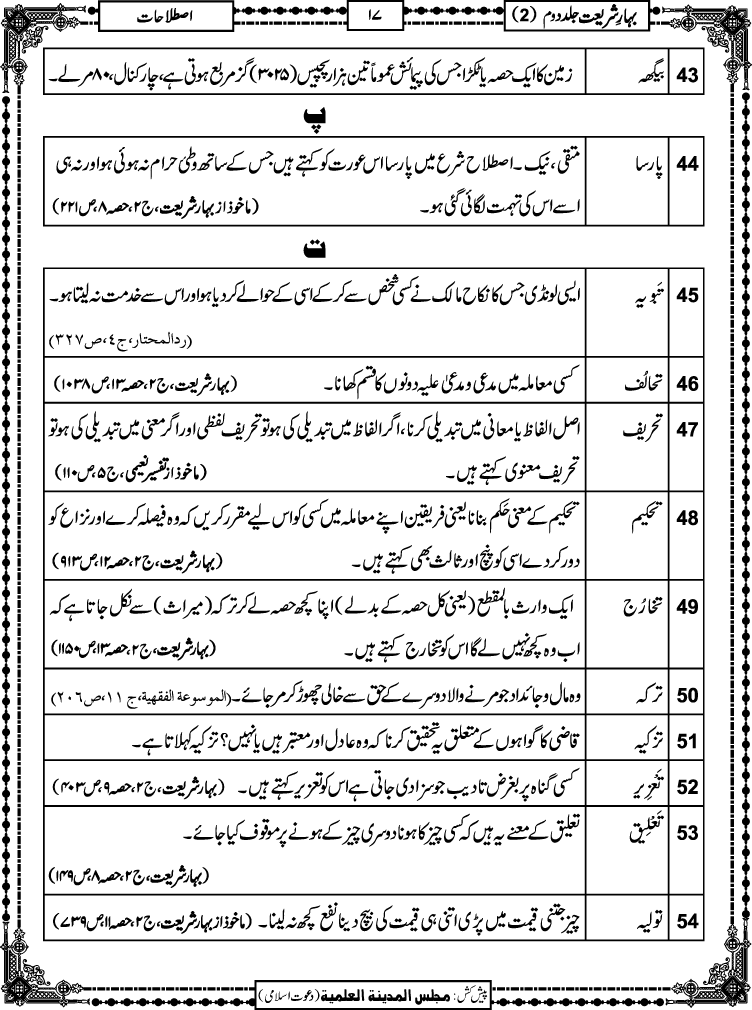 بہارِ شریعت جلد دوم (2)
۱۷
اصطلاحات
43 بیگھہ زمین کا ایک حصہ یا ٹکڑا جس کی پیمائش عموماً تین ہزار پچیس (۳۰۲۵) گز مربع ہوتی ہے، چار کنال، ۸۰ مرلے۔
پ
44 پارسا متقی، نیک۔ اصطلاحِ شرع میں پارسا اس عورت کو کہتے ہیں جس کے ساتھ وطئ حرام نہ ہوئی ہو اور نہ ہی
اسے اس کی تہمت لگائی گئی ہو۔ (ماخوذ از بہارِ شریعت، ج۲، حصہ ۸، ص ۲۲۱)
ت
45 تَبوِیہ ایسی لونڈی جس کا نکاح مالک نے کسی شخص سے کر کے اسی کے حوالے کر دیا ہو اور اس سے خدمت نہ لیتا ہو۔
(ردالمحتار، ج٤، ص٣٢٧)
46 تحالُف کسی معاملہ میں مدعی و مدعیٰ علیہ دونوں کا قسم کھانا۔ (بہارِ شریعت، ج۲، حصہ ۱۳، ص ۱۰۳۸)
47 تحریف اصل الفاظ یا معانی میں تبدیلی کرنا، اگر الفاظ میں تبدیلی کی ہو تو تحریف لفظی اور اگر معنی میں تبدیلی کی ہو تو
تحریف معنوی کہتے ہیں۔ (ماخوذ از تفسیر نعیمی، ج۵، ص ۱۱۰)
48 تحکیم تحکیم کے معنی حَکم بنانا یعنی فریقین اپنے معاملہ میں کسی کو اس لیے مقرر کریں کہ وہ فیصلہ کرے اور نزاع کو
دور کر دے اسی کو پنچ اور ثالث بھی کہتے ہیں۔ (بہارِ شریعت، ج۲، حصہ ۱۲، ص ۹۱۳)
49 تخارُج ایک وارث بالمقطع (یعنی کل حصہ کے بدلے) اپنا کچھ حصہ لے کر ترکہ (میراث) سے نکل جاتا ہے کہ
اب وہ کچھ نہیں لے گا اس کو تخارج کہتے ہیں۔ (بہارِ شریعت، ج۲، حصہ ۱۳، ص ۱۱۵۰)
50 ترکہ وہ مال و جائداد جو مرنے والا دوسرے کے حق سے خالی چھوڑ کر مر جائے۔ (الموسوعة الفقهية، ج ۱۱، ص۲۰۶)
51 تزکیہ قاضی کا گواہوں کے متعلق یہ تحقیق کرنا کہ وہ عادل اور معتبر ہیں یا نہیں؟ تزکیہ کہلاتا ہے۔
52 تَعْزِیر کسی گناہ پر بغرض تادیب جو سزا دی جاتی ہے اس کو تعزیر کہتے ہیں۔ (بہارِ شریعت، ج۲، حصہ ۹، ص ۴۰۳)
53 تَعْلِیق تعلیق کے معنے یہ ہیں کہ کسی چیز کا ہونا دوسری چیز کے ہونے پر موقوف کیا جائے۔
(بہارِ شریعت، ج۲، حصہ ۸، ص ۱۴۹)
54 تولیہ چیز جتنی قیمت میں پڑی اتنی ہی قیمت کی بیچ دینا نفع کچھ نہ لینا۔ (ماخوذ از بہارِ شریعت، ج۲، حصہ ۱۱، ص ۷۳۹)
پیش کش: مجلس المدینة العلمیة (دعوت اسلامی)